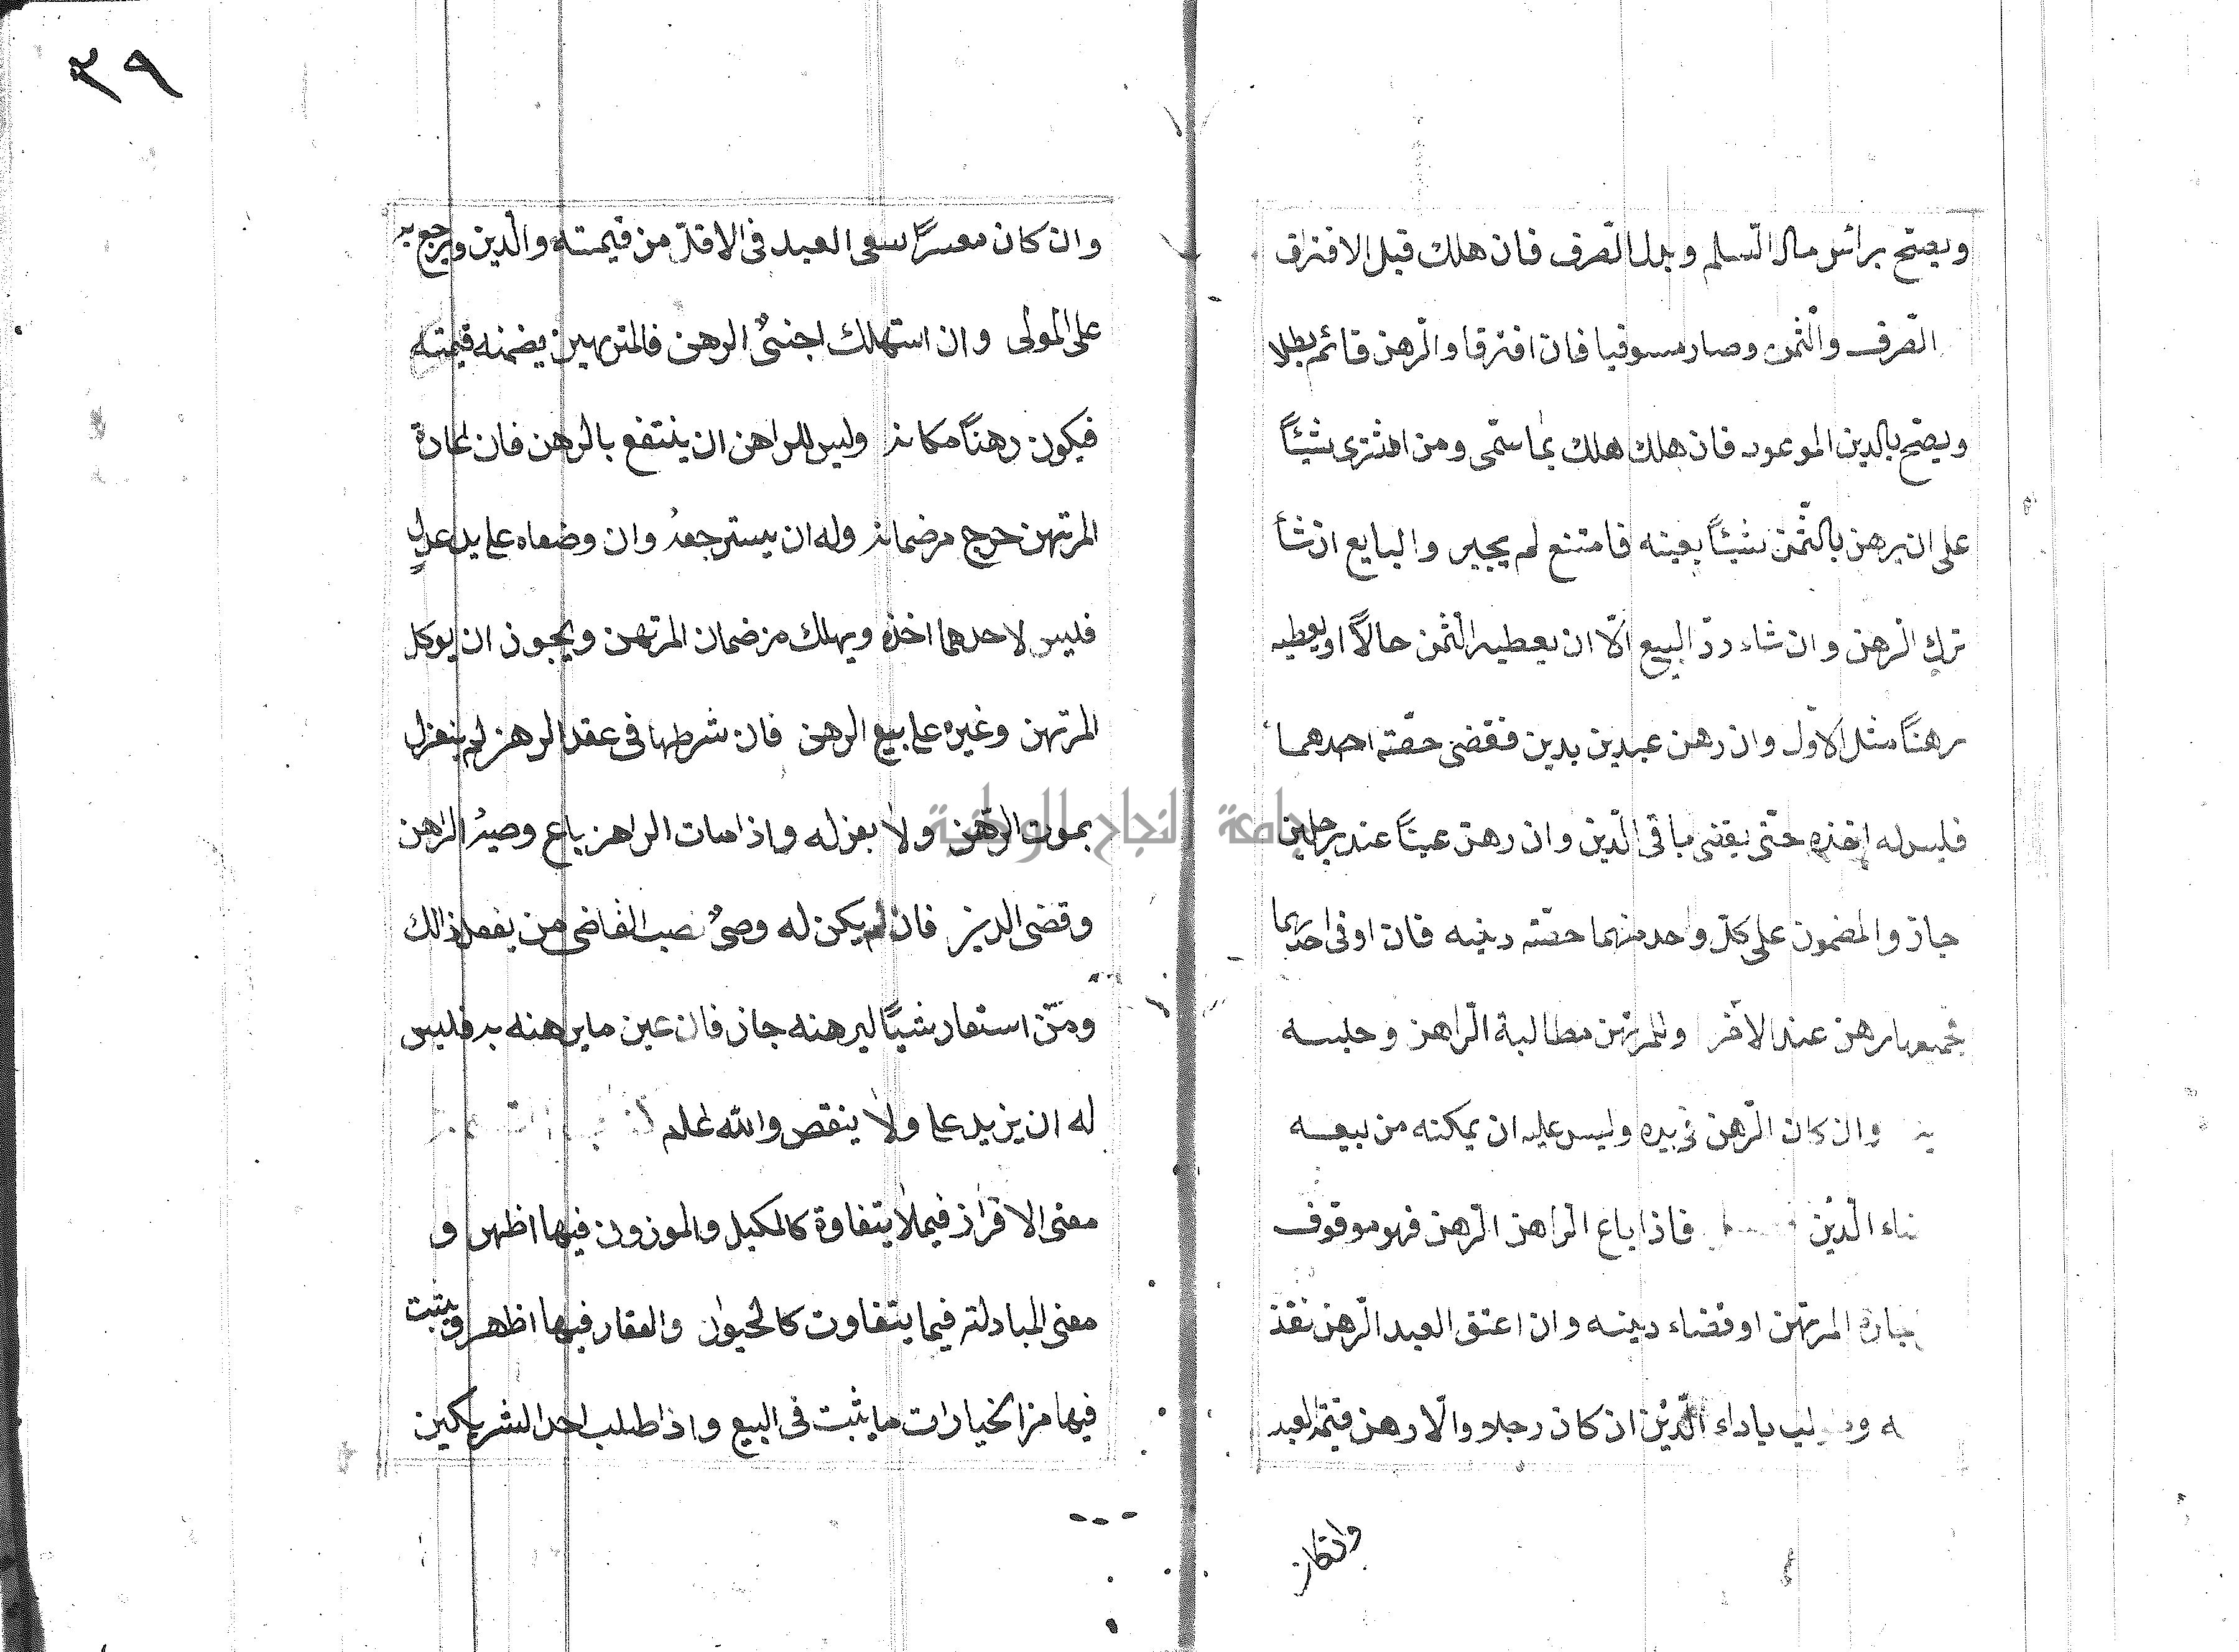 ويصح برأس مال السلم وبدل الصرف فان هلك قبل الافتراق
الصرف والثمن وصار مسوفيا فان افترقا والرهن قائم بطلا
ويصح بالدين الموعود فان هلك هلك بما سمى ومن اشترى شيئاً
على ان يرهن بالثمن شيئاً بعينه فامتنع لم يجبر والبايع ان شأ
ترك الرهن وان شاء ردّ البيع الّا ان يعطيه الثمن حالاً او يعطيه
رهناً مثل الاوّل وان رهن عبدين بدين فقضى حصّته احدهما
فليس له اخذه حتّى يقضى باقى الدّين وان رهن عيناً عند رجلين
جاز والمضمون على كلّ واحد منهما حصّته دينه فان اوفى احدهما
رهن عند الآخر وللمرتهن مطالبة الرّاهن وحبسه
وان كان الرّهن فى يده وليس عليه ان يمكنه من بيعه
الدّين فاذا باع الرّاهن الرّهن فهو موقوف
المرتهن او قضاء دينه وان اعتق العبد الرّهن نفذ
باداء الدّين ان كان رجلا والّا رهن قيمة العبد
وان كان
٣٩
وان كان معسرًا سعى العبد فى الاقلّ من قيمته والدين ويرجع به
على المولى وان استهلك اجنبىٌ الرهن فالمرتهن يضمنه قيمته
فيكون رهناً مكانه وليس للراهن ان ينتفع بالرهن فان اعادة
المرتهن خرج من ضمانه وله ان يسترجعهُ وان وضعاه على يد عدلٍ
فليس لاحدهما اخذه ويهلك من ضمان المرتهن ويجوز ان يوكل
المرتهن وغيره على بيع الرهن فان شرطها فى عقد الرهن لم ينعزل
بموت الرّهن ولا بعزله واذا مات الراهن باع وصيهُ الراهن
وقضى الدين فان لم يكن له وصىٌ نصب القاضى من يفعل ذالك
ومن استعار شيئًا ليرهنه جاز فان عين ما يرهنه به فليس
له ان يزيد على ولا ينقص والله اعلم
معنى الاقراز فيما لا يتفاوة كالمكيل والموزون فيها اظهر و
معنى المبادلة فيما يتفاوت كالحيوان والعقار فيها اظهر ويثبت
فيها من الخيارات ما يثبت فى البيع واذا طلب احد الشريكين
جامعة النجاح الوطنية